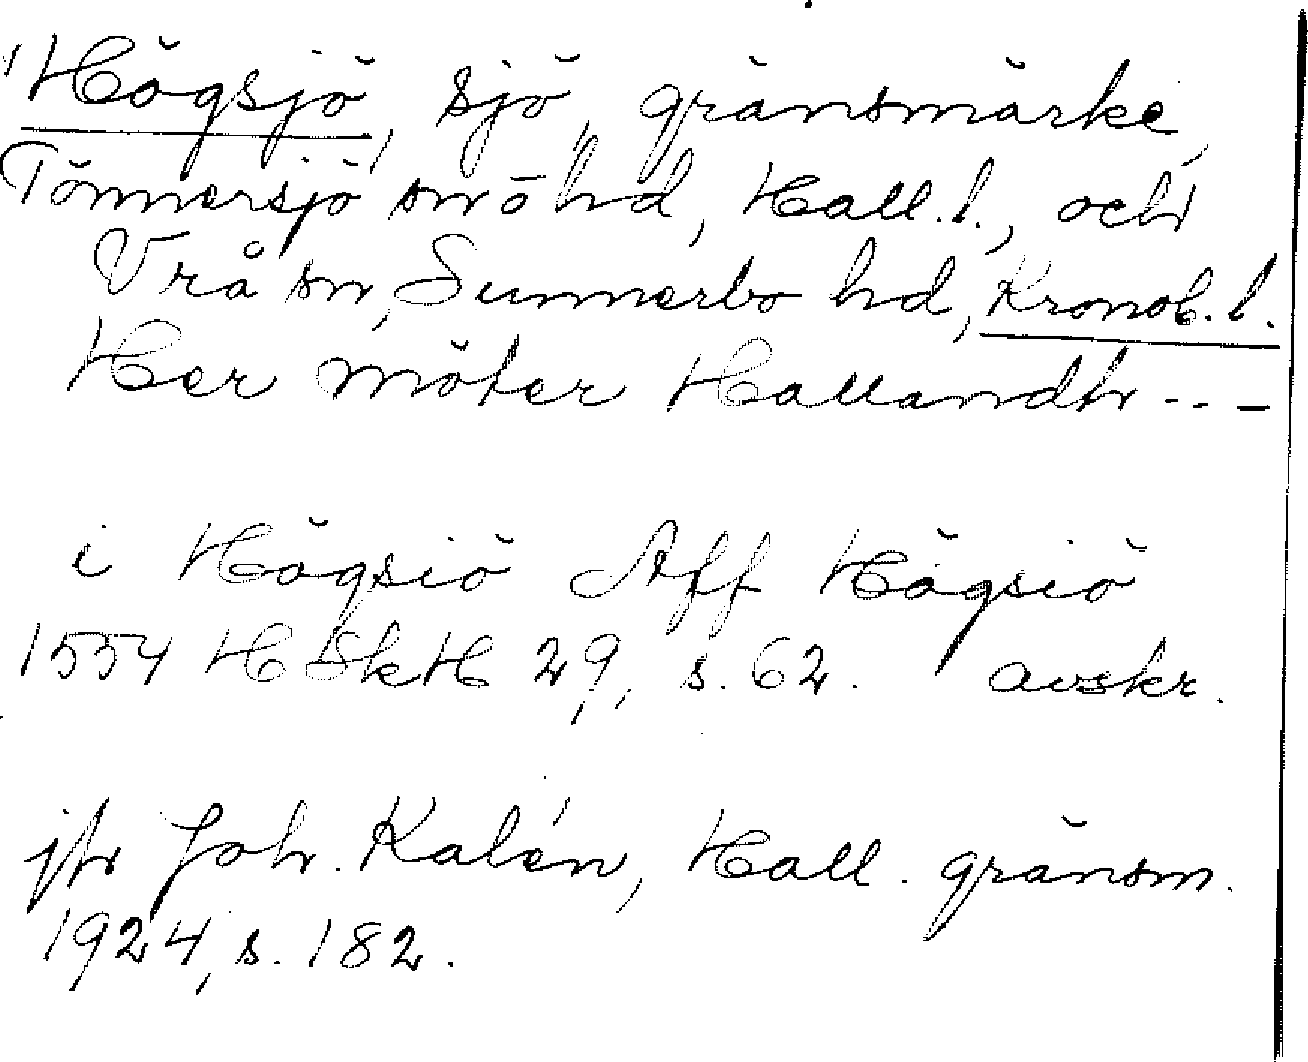 "Högsjö", sjö, gränsmärke,
Tönnersjö sn o hd, Hall.l., och
Vrå sn, Sunnerbo hd, Kronob.l.
Her möter Hallandh ---
i Högsiö Aff Högsiö
1554 HSkH 29, s. 62. avskr.
jfr Joh. Kalén, Hall. gränsm.
1924, s. 182.